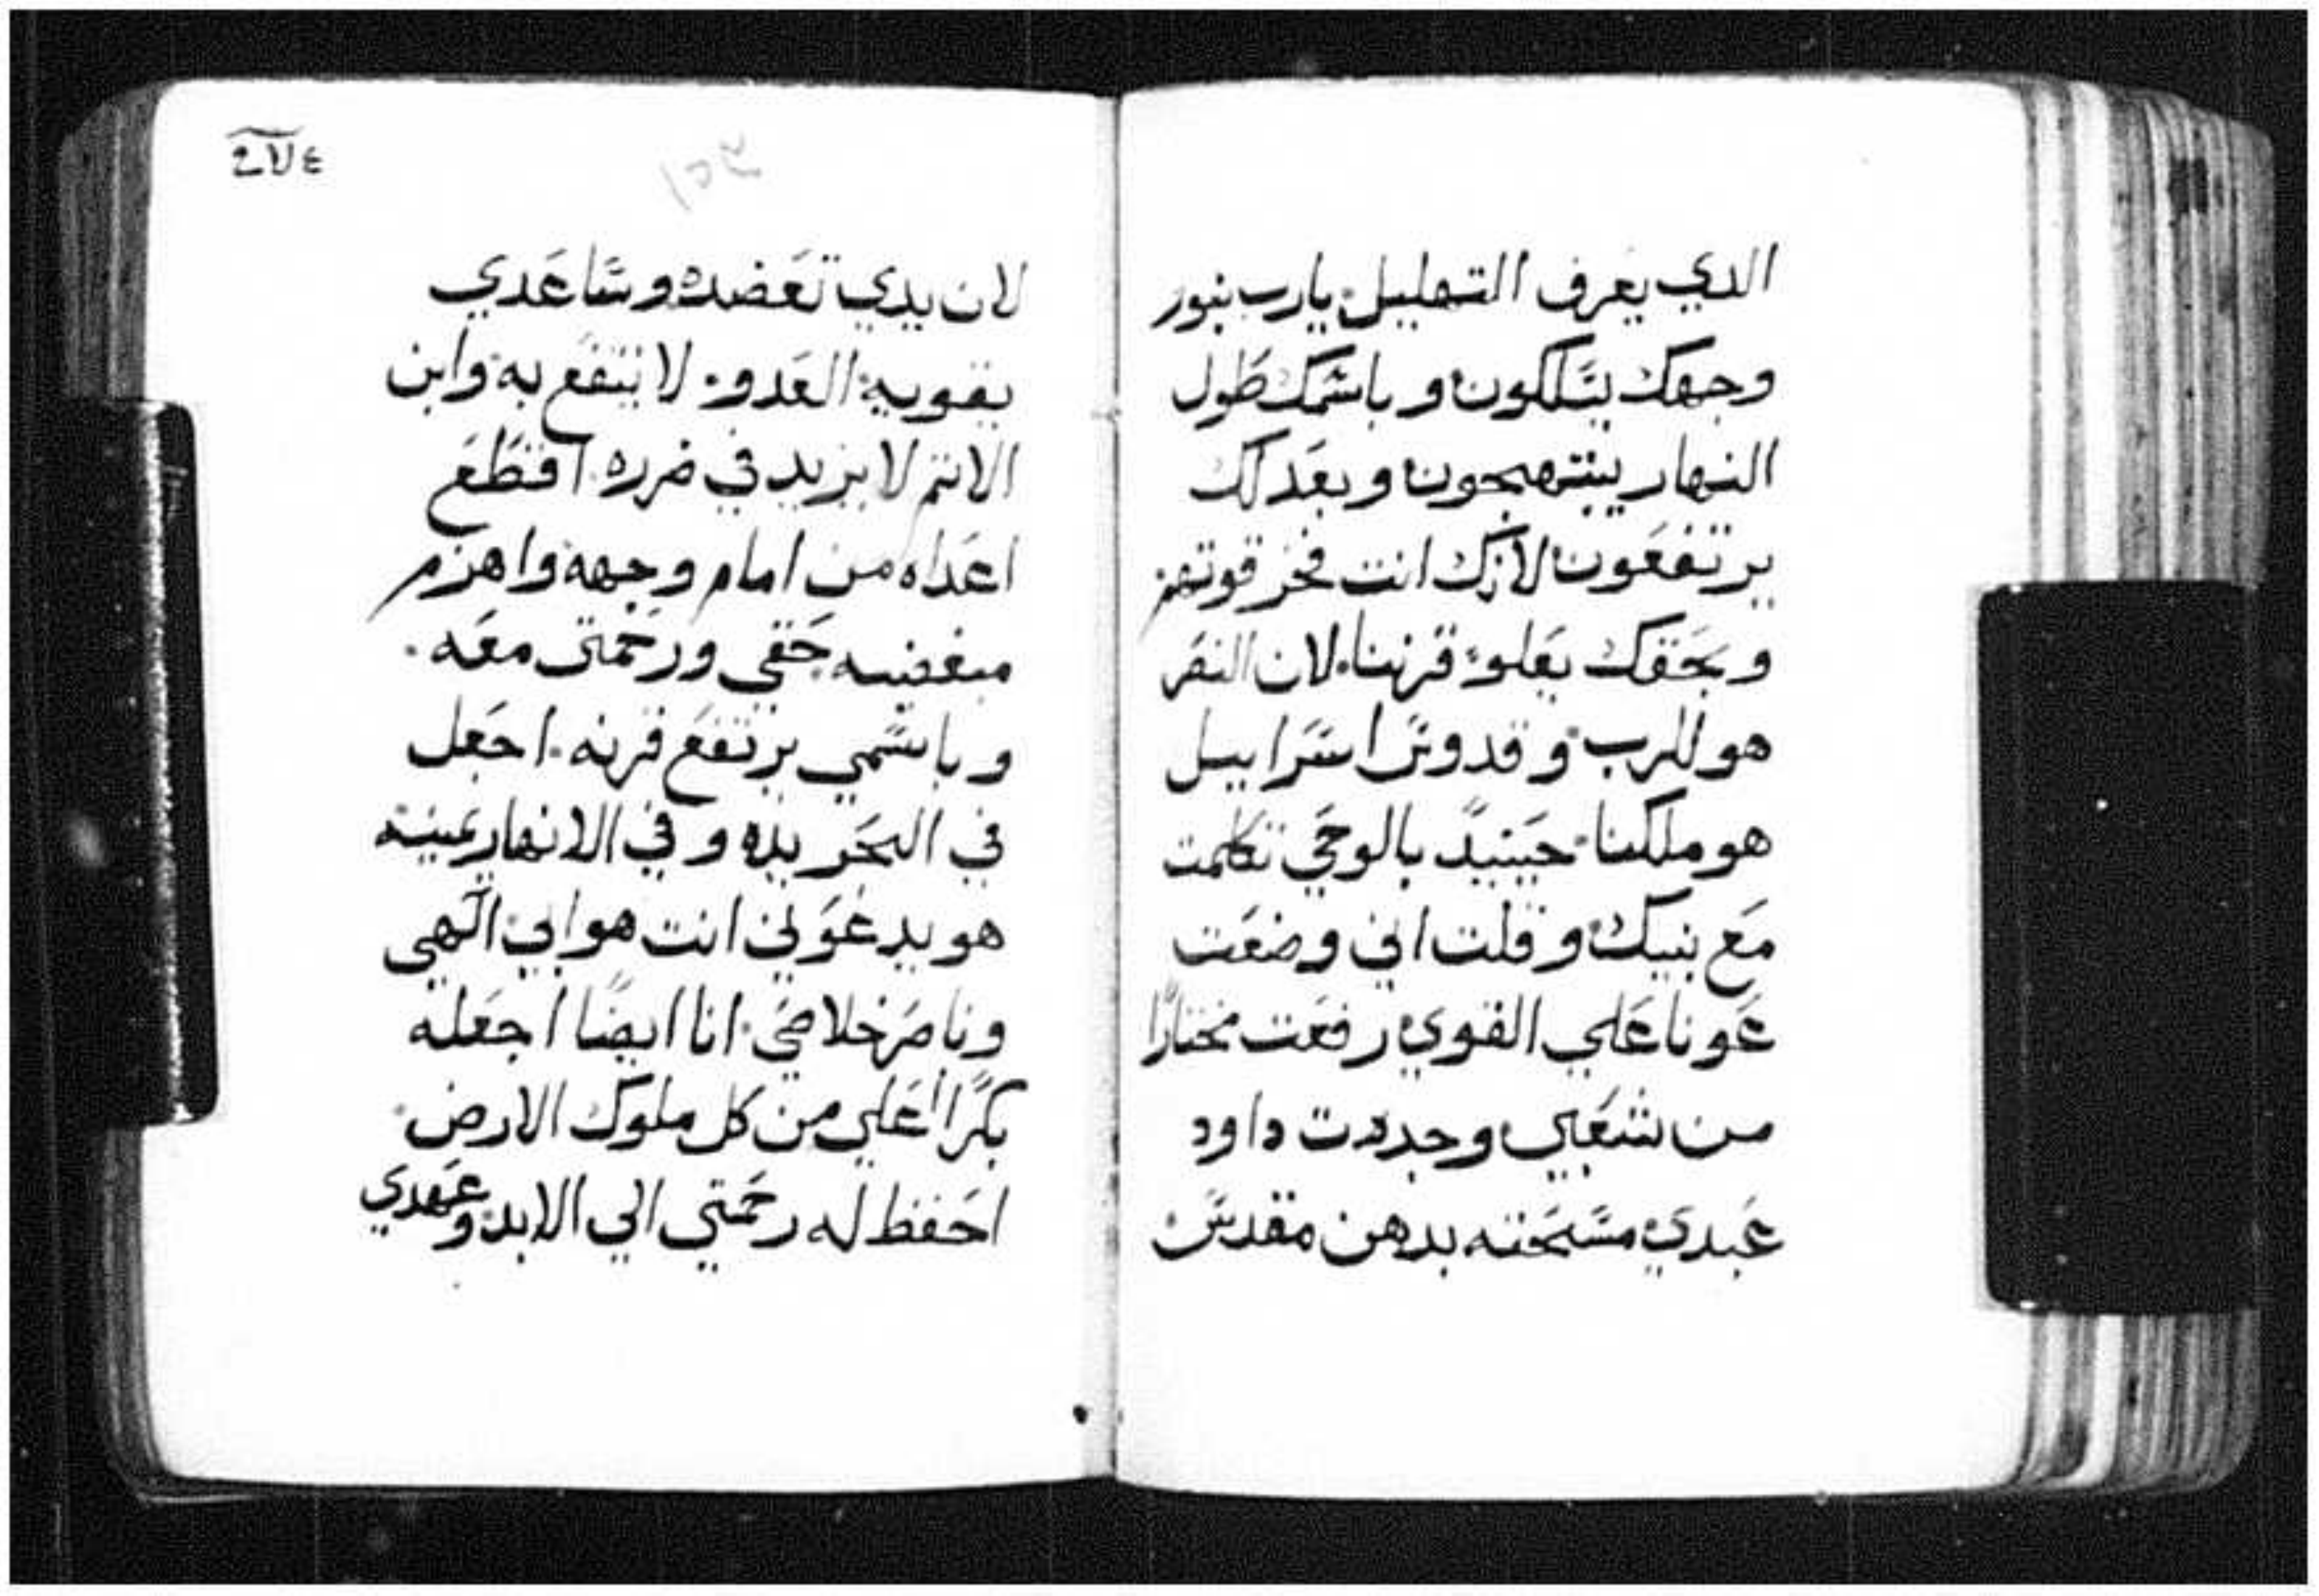 الدي يعرف التهليل يارب بنور
وجهك يسلكون وباسمك طول
النهار يبتهجون وبعدلك
يرتفعون لانك انت فخر قوتهم
وبحقك يعلو قرننا لان النصر
هو للرب وقدوس اسراييل
هو ملكنا حينيدً بالوحي تكلمت
مع بنيك وقلت اني وضعت
عونا علي القوي رفعت مختارًا
من شعبي وجددت داود
عبدي مسحته بدهن مقدس
لان يدي تعضده وساعدي
يقويه العدو لا ينتفع به وابن
الاتم لا يزيد في ضرره اقتطع
اعداه من امام وجهه واهزم
مبغضيه حقي ورحمتي معه
وباسمي يرتفع قرنه اجعل
في البحر يده وفي الانهار يمينه
هو يدعوني انت هو ابي الهي
وناصر خلاصي انا ايضًا اجعله
بكرًا اعلي من كل ملوك الارض
احفظ له رحمتي الي الابد وعهدي